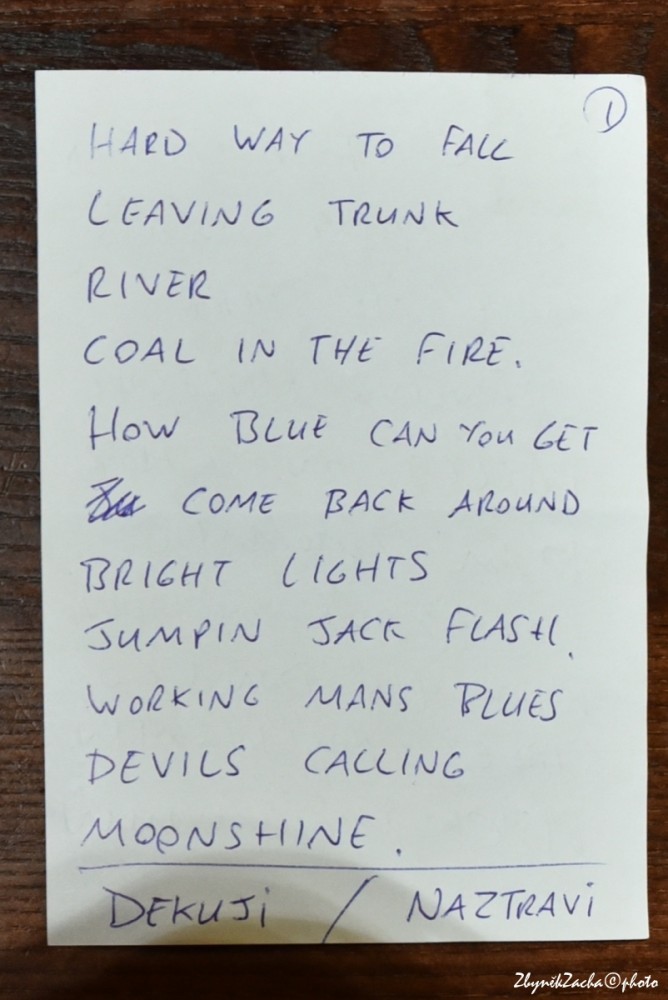 1
HARD WAY TO FALL
LEAVING TRUNK
RIVER
COAL IN THE FIRE.
HOW BLUE CAN YOU GET
COME BACK AROUND
BRIGHT LIGHTS
JUMPIN JACK FLASH.
WORKING MANS BLUES
DEVILS CALLING
MOONSHINE.
DEKUJI / NAZTRAVI
ZbyněkZacha©photo